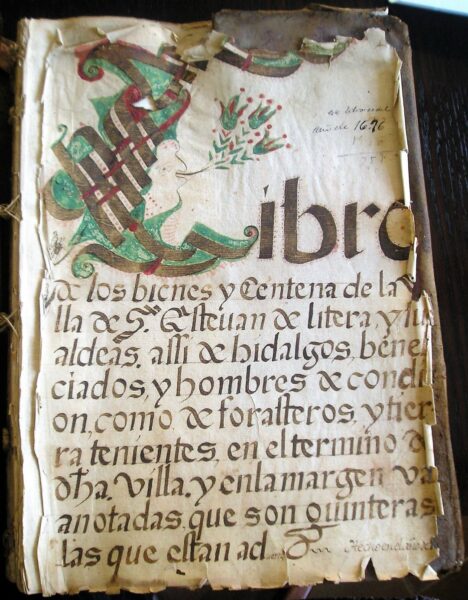 año de 1696
Libro
de los bienes y Centena de la vi
lla de Sn. Esteuan de litera, y sus
aldeas, assi de hidalgos, bene
ciados, y hombres de condici
on, como de forasteros, y tier
ra tenientes, en el termino d
dha. villa. y en la margen va
anotadas, que son quinteras
las que estan ad
Hecho en el año de